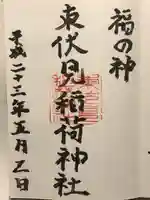 福の神
東伏見稲荷神社
平成二十三年五月三日